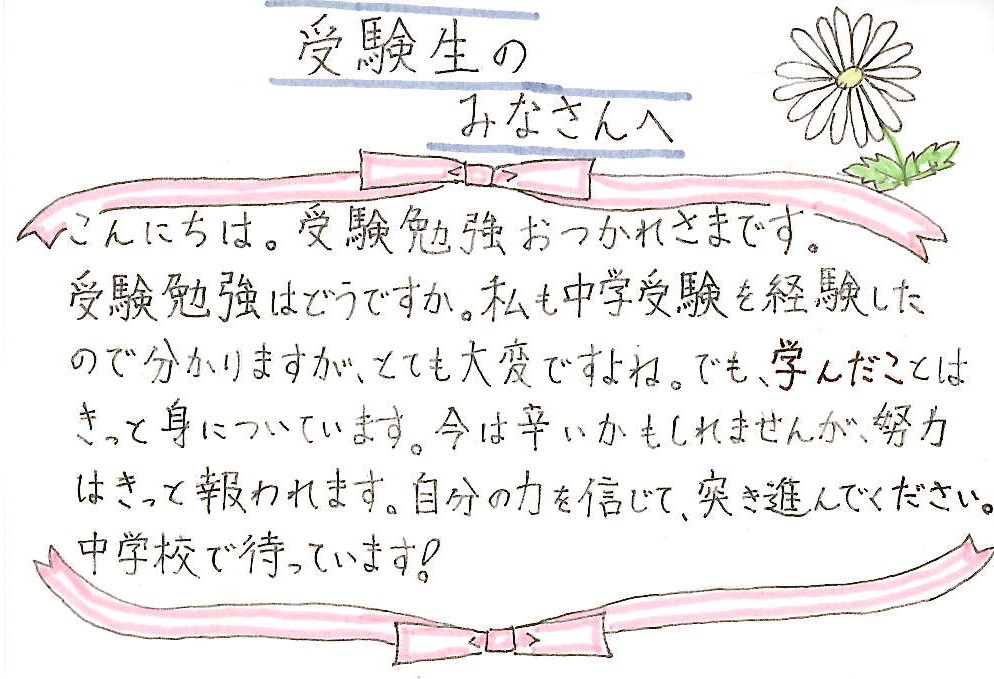 受験生の
みなさんへ
こんにちは。受験勉強おつかれさまです。
受験勉強はどうですか。私も中学受験を経験した
ので分かりますが、とても大変ですよね。でも、学んだことは
きっと身についています。今は辛いかもしれませんが、努力
はきっと報われます。自分の力を信じて、突き進んでください。
中学校で待っています!